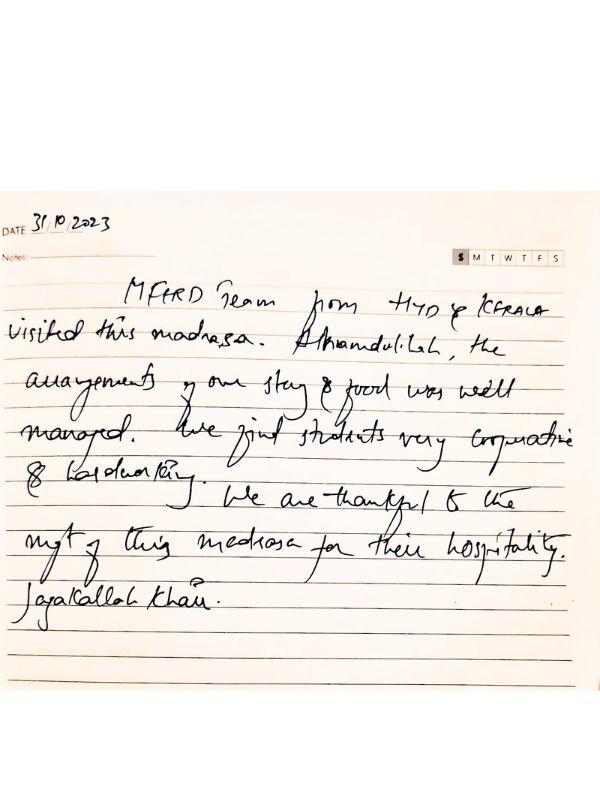 DATE 31/10/2023
Notes:
S M T W T F S
MFERD Team from HYD & KERALA
visited this madrasa. Alhamdulilah, the
arrangements of our stay & food was well
managed. We find students very cooperative
& hardworking. We are thankful to the
mgt of this madrasa for their hospitality.
Jazakallah Khair.